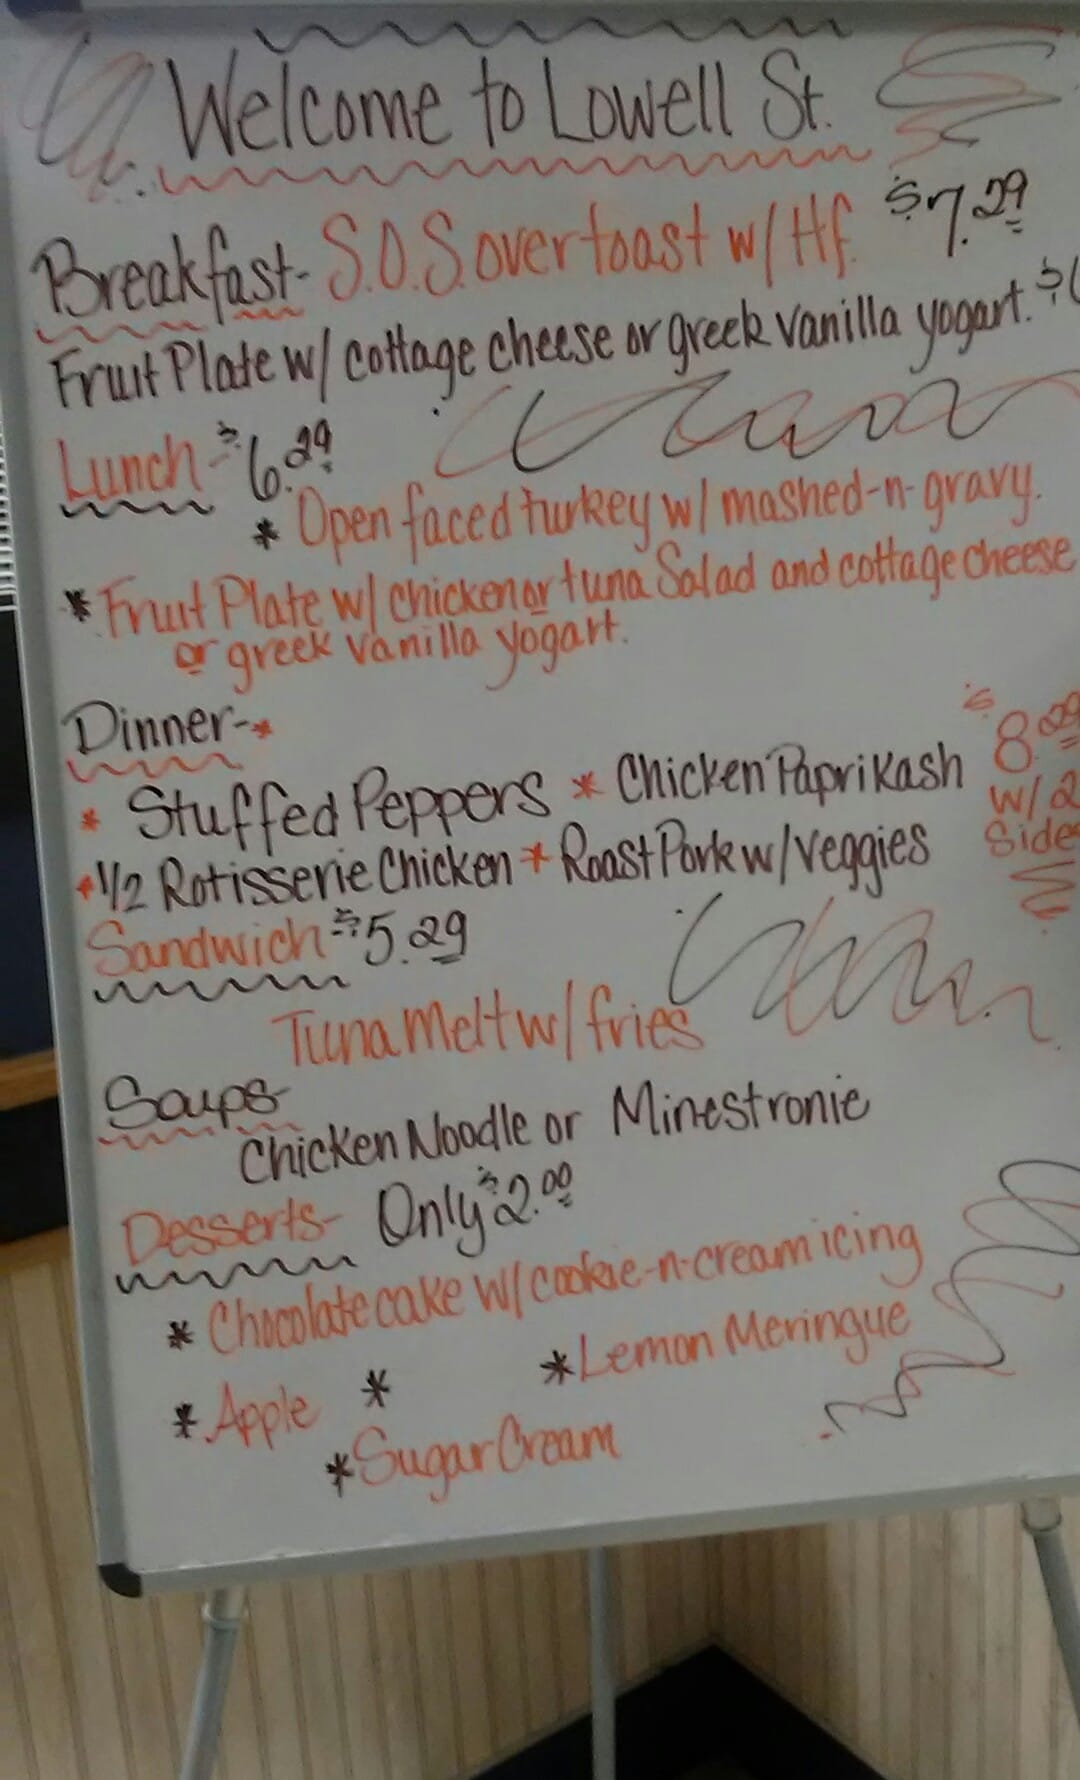 Welcome to Lowell St.
Breakfast- S.O.S. over toast w/ H.f. $7.29
Fruit Plate w/ cottage cheese or greek vanilla yogart. $
Lunch - $6.29
* Open faced turkey w/ mashed-n-gravy.
* Fruit Plate w/ chicken or tuna Salad and cottage cheese
or greek vanilla yogart.
Dinner-*
* Stuffed Peppers * Chicken PapriKash $8.29
w/ 2
Sides
* 1/2 Rotisserie Chicken * Roast Pork w/ veggies
Sandwich - $5.29
Tuna Melt w/ fries
Soups-
Chicken Noodle or Minestronie
Desserts- Only $2.00
* Chocolate cake w/ cookie-n-cream icing
* Apple * * Lemon Meringue
* Sugar Cream